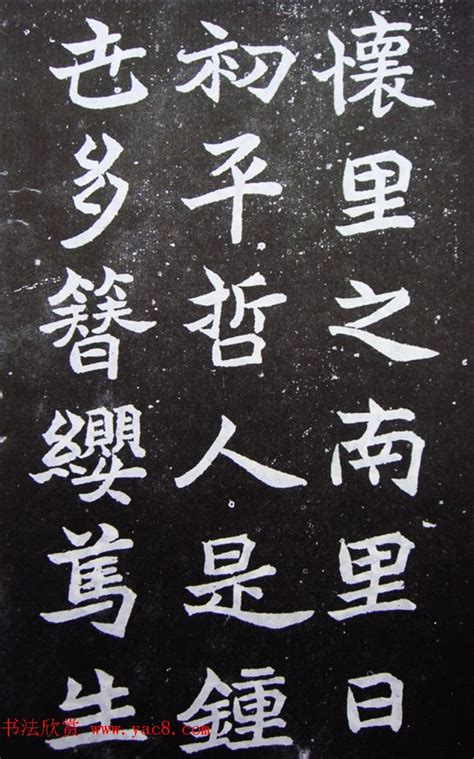 懷里之南里日
初平哲人是鍾
世多簪纓篤生
书法欣赏 www.yac8.com